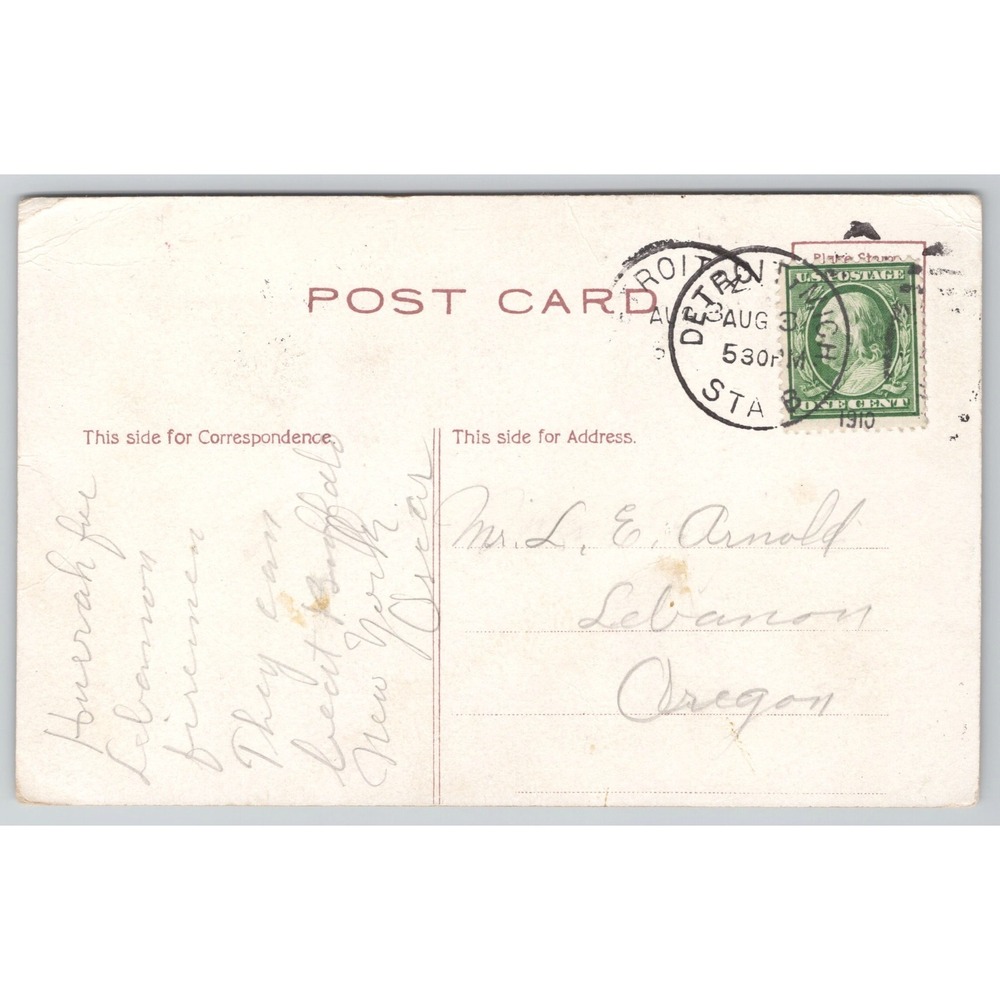 POST CARD
Place Stamp
U.S. POSTAGE
ONE CENT
ROIT
AUG 3
DETROIT, MICH
AUG 3
530 PM
STA B
1910
This side for Correspondence.
This side for Address.
Hurrah for
Lebanon
firemen
They can
beat Buffalo
New York
Oscar
Mr. L. E. Arnold
Lebanon
Oregon